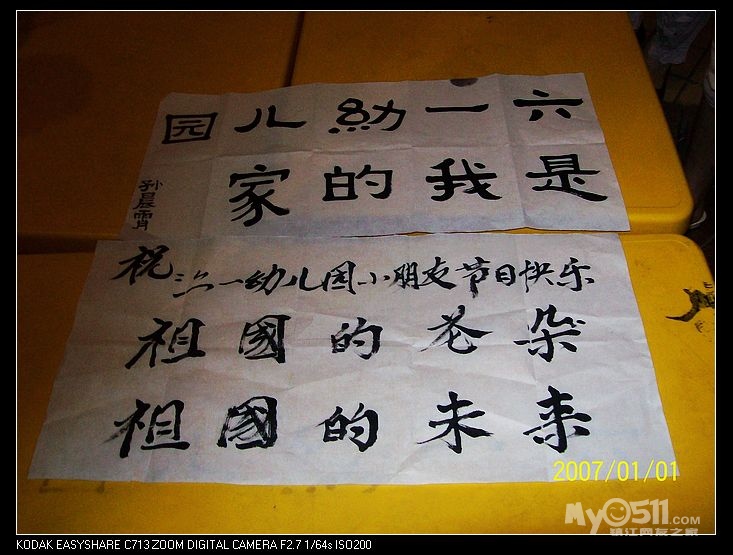 六一幼儿园
是我的家
孙晨霄
祝六一幼儿园小朋友节日快乐
祖國的花朵
祖國的未来
2007/01/01
My0511.com
镇江网友之家
KODAK EASYSHARE C713 ZOOM DIGITAL CAMERA F2.7 1/64s ISO200